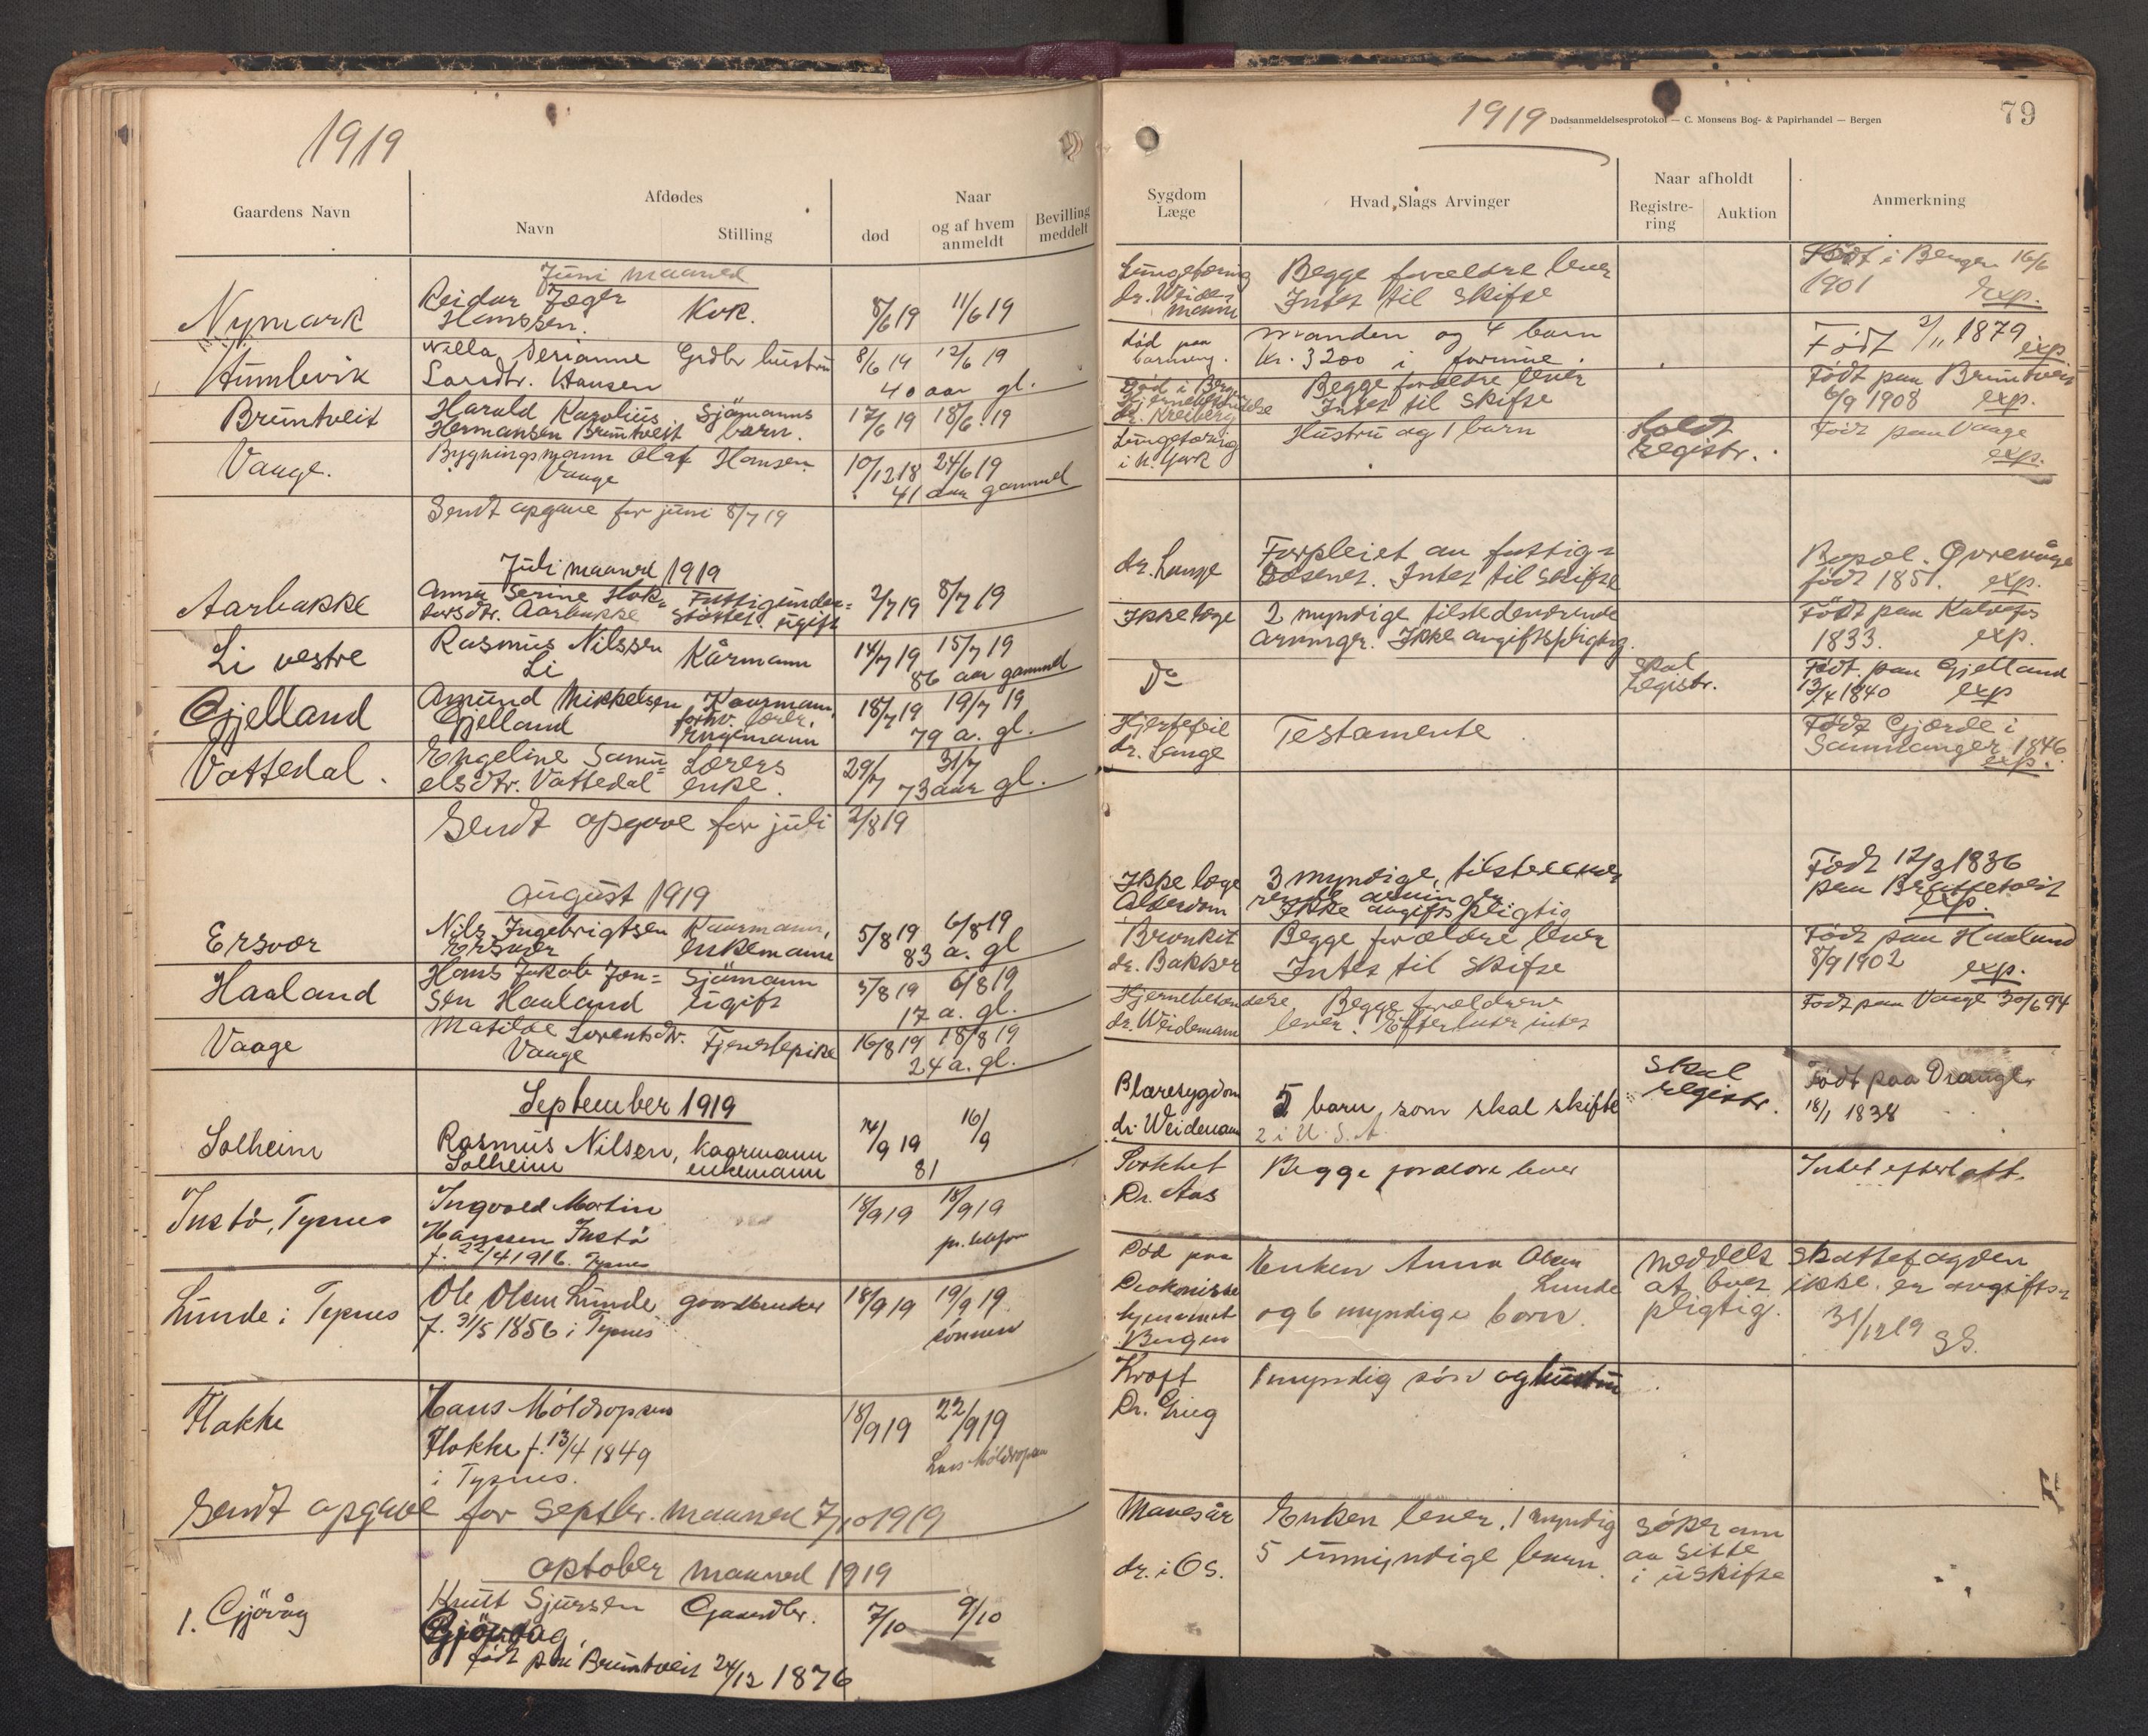 1919
Gaardens Navn
Afdødes
Navn
Stilling
Naar
død
og af hvem anmeldt
Bevilling meddelt
Juni maaned
Nymark
Reidar Jæger
Hanssen.
Kok.
8/6 19 11/6 19
Humlevik
Serianne Grdbr hustru 8/6 19 12/6 19
Larsdtr. Hansen 40 aar gl.
Bruntveit
Harald Karolius Sjömanns 17/6 19 18/6 19
Hermansen Bruntveit barn.
Vaage.
Bygningsmann Olaf Hansen 10/12 18 24/6 19
Vaage 41 aar gammel
Sendt opgave for juni 8/7 19
Juli maaned 1919
Aarbakke
Anna Serine Hok= Fattigunder= 2/7 19 8/7 19
dtr. Aarbakke støttet. ugift
Li vestre
Rasmus Nilssen Kårmann 14/7 19 15/7 19
Li 86 aar gammel
Gjelland
Amund Mikkelsen Kaarmann, 18/7 19 19/7 19
Gjelland forhv. lærer, 79 a. gl.
Vattedal.
Engeline Samu= Lærers 29/7 31/7
elsdtr. Vattedal enke. 73 aar gl.
Sendt opgave for juli 2/8 19
August 1919
Ersvær
Nils Ingebrigtsen Kaarmann, 5/8 19 6/8 19
Ersvær enkemann 83 a. gl
Haaland
Hans Jakob Jon= Sjömann 5/8 19 6/8 19
sen Haaland ugift 17 a. gl.
Vaage
Matilde Lorentsdtr. Tjenstepike 16/8 19 18/8 19
Vaage 24 a. gl.
September 1919
Solheim
Rasmus Nilsen, kaarmann 14/9 19 16/9
Solheim enkemann 81
Instö, Tysnes
Ingvald Martin 18/9 19 18/9 19
Hanssen Instö pr. telefon
f. 22/4 1916. Tysnes
Lunde i Tysnes
Ole Olsen Lunde gaardbruker 18/9 19 19/9 19
f. 31/5 1856 i Tysnes sönnen
Flakke
Hans Möldropsen 18/9 19 22/9 19
Flakke f. 13/4 1849 Lars Möldropsen
i Tysnes.
Sendt opgave for Septbr. maaned 7/10 1919
Oktober maaned 1919
1. Gjövåg
Knut Sjursen Gaardbr. 7/10 9/10
Gjövaag,
født paa Bruntveit 24/12 1876
1919 Dødsanmeldelsesprotokol — C. Monsens Bog- & Papirhandel — Bergen
79
Sygdom Læge
Hvad Slags Arvinger
Naar afholdt
Registrering
Auktion
Anmerkning
Lungetæring Begge forældre lever Född i Bergen 16/6
dr. Weidemann Intet til skifte 1901 exp.
død paa Manden og 4 barn Född 3/11 1879
barnseng. Kr. 3200 i formue. exp
Död i Bergen Begge forældre lever Född paa Bruntveit
dr. Kreiberg Intet til skifte 6/9 1908 exp.
Lungetæring Hustru og 1 barn holdt registr. Född paa Vaage
i N. York exp.
dr. Lange Forpleiet av fattig=
væsenet. Intet til skifte
Bopæl. Øvrevåge
født 1851. exp.
Ikke læge 2 myndige tilstedeværende
arvinger. Ikke avgiftspligtig.
1833. exp.
Do Skal registr. Född paa Gjelland
13/4 1840 exp
Hjertefeil Testamente Född Gjærde i
dr. Lange Samnanger 1846
exp.
Ikke læge 3 myndige, tilstedevæ
Alderdom rende arvinger
Ikke avgiftspligtig
Född 12/3 1836
exp.
Bronkit Begge forældre lever Född paa Haaland
dr. Bakker Intet til skifte 8/9 1902 exp.
Hjernebetændelse. Begge forældrene Född paa Vaage 30/6 94
dr. Weidemann lever. Efterlater intet
Blæresygdom 5 barn, som skal skifte Skal registr. Född paa Drange
dr. Weidemann 2 i U.S.A. 18/1 1838
Begge forældre lever Intet efterlatt.
Dr. Aas
Död paa Enken Anna Olsen Meddelt skattefogden
Diakonisse Lunde at boet ikke er avgifts=
hjemmet og 6 myndige barn. pligtig. 31/12 19
Bergen
Kræft 1 myndig sön og hustru
Dr. Grieg
Mavesår Enken lever. 1 myndig Söker om
dr. i Os. 5 umyndige barn. aa sitte
i uskifte